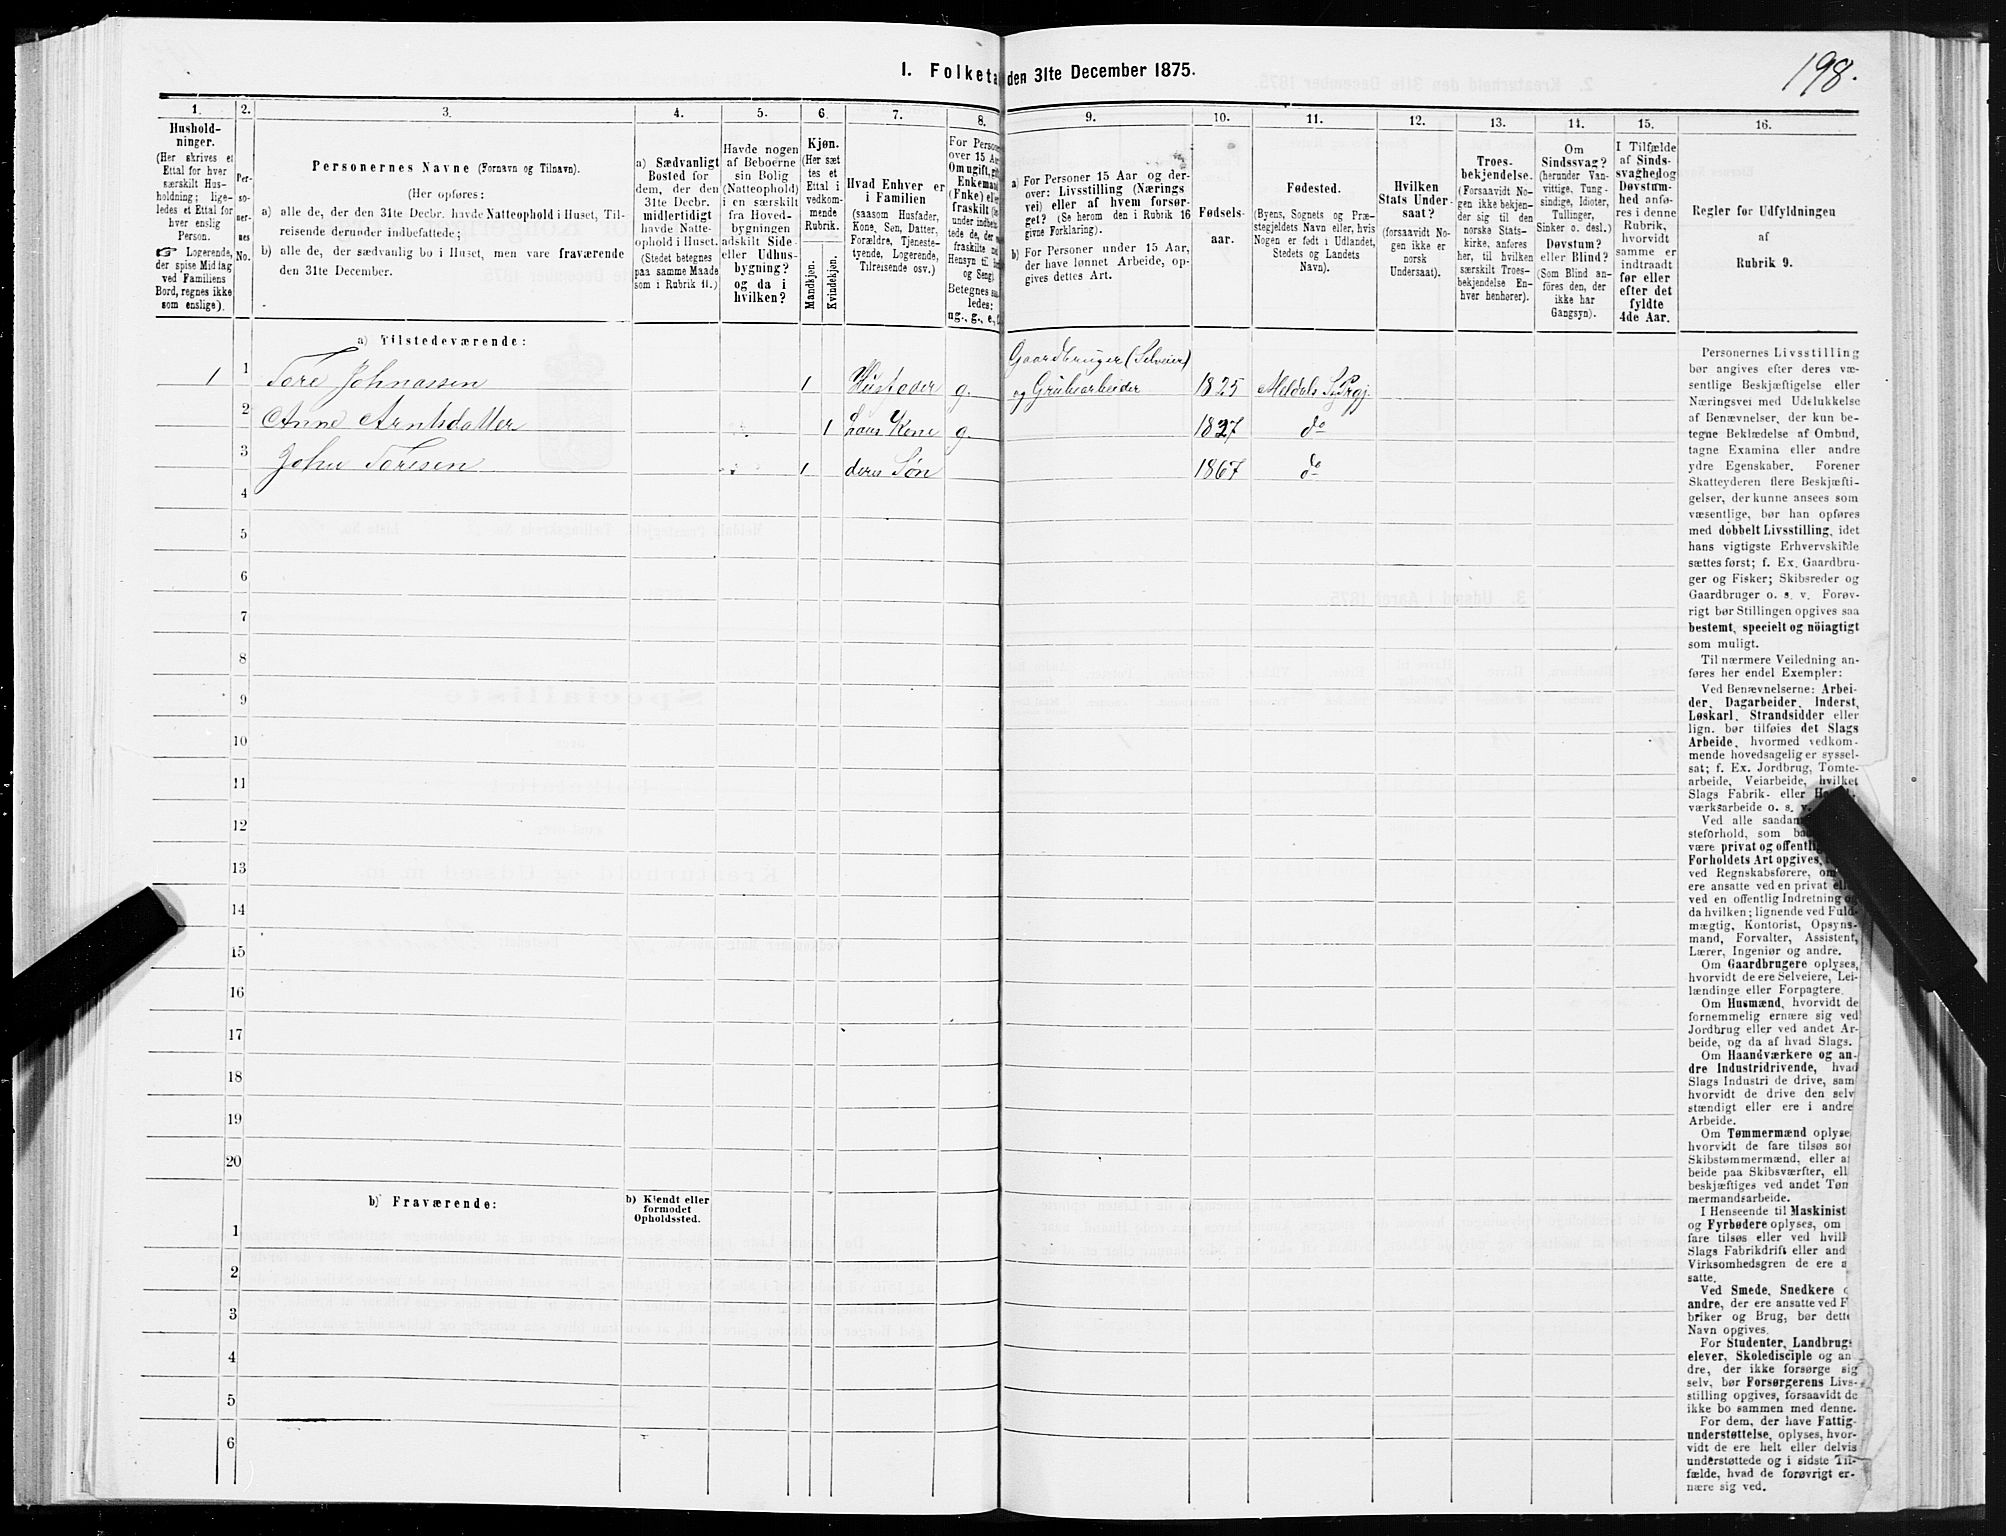 198.
I. Folketa den 31te December 1875.
1. 2. 3. 4. 5. 6. 7. 8. 9. 10. 11. 12. 13. 14. 15. 16.
Hushold-
ninger.
(Her skrives et
Ettal for hver
særskilt Hus-
holdning; lige-
ledes et Ettal for
hver enslig
Person.
☞ Logerende,
der spise Middag
ved Familiens
Bord, regnes ikke
som enslige).
Per-
so-
ner-
nes
No.
Personernes Navne (Fornavn og Tilnavn).
(Her opføres:
a) alle de, der den 31te Decbr. havde Natteophold i Huset, Til-
reisende derunder indbefattede;
b) alle de, der sædvanlig bo i Huset, men vare fraværende
den 31te December.
a) Sædvanligt
Bosted for
dem, der den
31te Decbr.
midlertidigt
havde Natte-
ophold i Huset.
(Stedet betegnes
paa samme Maade
som i Rubrik 11.)
Havde nogen
af Beboerne
sin Bolig
(Natteophold)
i en særskilt
fra Hoved-
bygningen
adskilt Side-
eller Udhus-
bygning?
og da i
hvilken?
Kjøn.
(Her sæt-
tes et
Ettal i
vedkom-
mende
Rubrik.
Mandkjøn.
Kvindekjøn.
Hvad Enhver er
i Familien
(saasom Husfader,
Kone, Søn, Datter,
Forældre, Tjeneste-
tyende, Logerende,
Tilreisende osv.)
For Persone
over 15 Aar
Om ugift, gift
Enkemand
(Enke) elle
fraskilt (
under indbe
tede de, der
fraskilte ne
Hensyn til
og Seng)
Betegnes saa
ledes:
ug., g., e.,
a) For Personer 15 Aar og der-
over: Livsstilling (Nærings
vei) eller af hvem forsør-
get? (Se herom den i Rubrik 16
givne Forklaring).
b) For Personer under 15 Aar,
der have lønnet Arbeide, op-
gives dettes Art.
Fødsels-
aar.
Fødested.
(Byens, Sognets og Præ-
stegjeldets Navn eller, hvis
Nogen er født i Udlandet,
Stedets og Landets
Navn).
Hvilken
Stats Under-
saat?
(forsaavidt No-
gen ikke er
norsk
Undersaat).
Troes-
bekjendelse.
(Forsaavidt No-
gen ikke bekjen-
der sig til den
norske Stats-
kirke, anføres
her, til hvilken
særskilt Troes-
bekjendelse En-
hver henhører).
Om
Sindssvag?
(herunder Van-
vittige, Tung-
sindige, Idioter,
Tullinger,
Sinker o. desl.)
Døvstum?
eller Blind?
(Som Blind an-
føres den, der
ikke har
Gangsyn).
I Tilfælde
af Sinds-
svaghed og
Døvstum-
hed anfø-
res i denne
Rubrik,
hvorvidt
samme er
indtraadt
før eller
efter det
fyldte
4de Aar.
Regler for Udfyldningen
af
Rubrik 9.
a) Tilstedeværende:
1 1 Tore Johnassen 1 Husfader g. Gaardbruger (Selveier)
og Grubearbeider 1825 Meldals Prgj.
2 Anne Arntsdatter 1 hans Kone g. 1827 do
3 John Toresen 1 deres Søn 1867 do
4
5
6
7
8
9
10
11
12
13
14
15
16
17
18
19
20
b) Fraværende:
b) Kjendt eller
formodet
Opholdssted.
1
2
3
4
5
6
Personernes Livsstilling
bør angives efter deres væ-
sentlige Beskjæftigelse eller
Næringsvei med Udelukkelse
af Benævnelser, der kun be-
tegne Beklædelse af Ombud,
tagne Examina eller andre
ydre Egenskaber. Forener
Skatteyderen flere Beskjæfti-
gelser, der kunne ansees som
væsentlige, bør han opføres
med dobbelt Livsstilling, idet
hans vigtigste Erhvervskilde
sættes først; f. Ex. Gaardbru-
ger og Fisker; Skibsreder og
Gaardbruger o. s. v. Forøv-
rigt bør Stillingen opgives saa
bestemt, specielt og nöiagtigt
som muligt.
Til nærmere Veiledning an-
føres her endel Exempler:
Ved Benævnelserne: Arbei-
der, Dagarbeider, Inderst,
Løskarl, Strandsidder eller
lign. bør tilføies det Slags
Arbeide, hvormed vedkom-
mende hovedsagelig er syssel-
sat; f. Ex. Jordbrug, Tomte-
arbeide, Veiarbeide, hvilket
Slags Fabrik- eller
værksarbeide o. s. v.
Ved alle saadan
steforhold, som
være privat og offentlig
Forholdets Art opgives,
ved Regnskabsførere,
ere ansatte ved en privat
ved en offentlig Indretning og
da hvilken; lignende ved Fuld-
mægtig, Kontorist, Opsyns-
mand, Forvalter, Assistent,
Lærer, Ingeniør og andre.
Om Gaardbrugere oplyses,
hvorvidt de ere Selveiere, Lei-
lændinge eller Forpagtere.
Om Husmænd, hvorvidt de
fornemmelig ernære sig ved
Jordbrug eller ved andet Ar-
beide, og da af hvad Slags.
Om Haandværkere og an-
dre Industridrivende, hvad
Slags Industri de drive, samt
hvorvidt de drive den selv-
stændigt eller ere i andres
Arbeide.
Om Tømmermænd oplyse
hvorvidt de fare tilsøs so
Skibstømmermænd, eller a
beide paa Skibsværfter, ell
beskjæftiges ved andet Tøm
mermandsarbeide.
I Henseende til Maskinist
og Fyrbødere oplyses, om
fare tilsøs eller ved hvill
Slags Fabrikdrift eller and
Virksomhedsgren de ere a
satte.
Ved Smede, Snedkere o
andre, der ere ansatte ved F
briker og Brug, bør dette
Navn opgives.
For Studenter, Landbrugs
elever, Skoledisciple og an
dre, der ikke forsørge sig
selv, bør Forsørgerens Livs-
stilling opgives, forsaavidt de
ikke bo sammen med denne.
For dem, der have Fattig-
understøttelse, oplyses, hvor-
vidt de ere helt eller delvis
understøttede og i sidste Til-
fælde, hvad de forøvrigt er-
nære sig ved.